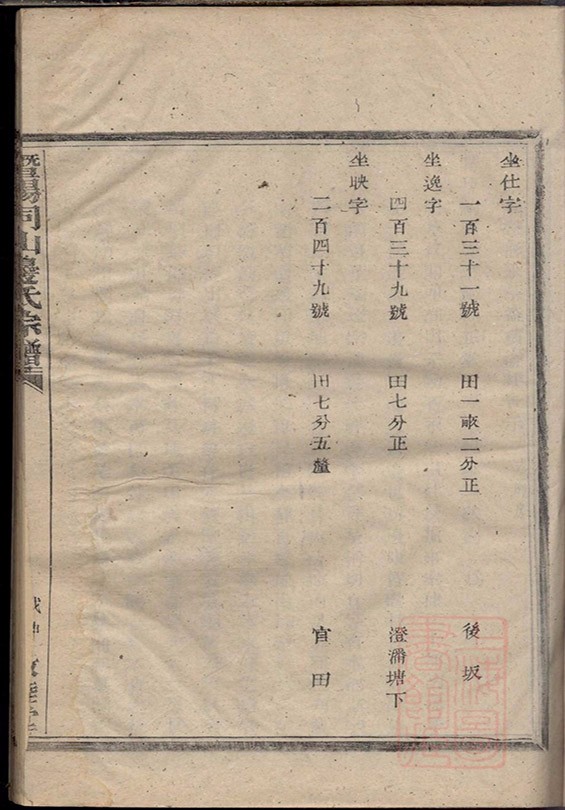 坐仕字
一百三十一號　田一畝二分正　後坂
坐逸字
四百三十九號　田七分正　澄潲塘下
坐映字
二百四十九號　田七分五釐　官田
暨陽同山邊氏宗譜
戊申